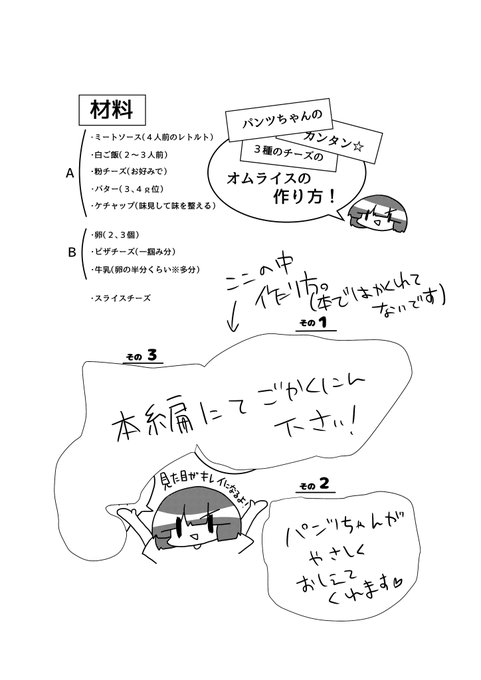 材料
A
・ミートソース(4人前のレトルト)
・白ご飯(2〜3人前)
・粉チーズ(お好みで)
・バター(3、4g位)
・ケチャップ(味見して味を整える)
B
・卵(2、3個)
・ピザチーズ(一掴み分)
・牛乳(卵の半分くらい※多分)
・スライスチーズ
パンツちゃんの
カンタン☆
3種のチーズの
オムライスの
作り方!
ここの中
作り方。
(本ではかくれて
ないです)
その1
その3
本編にてごかくにん
下さい!
見た目がキレイになるよ!
その2
パンツちゃんが
やさしく
おしえて
くれます♡